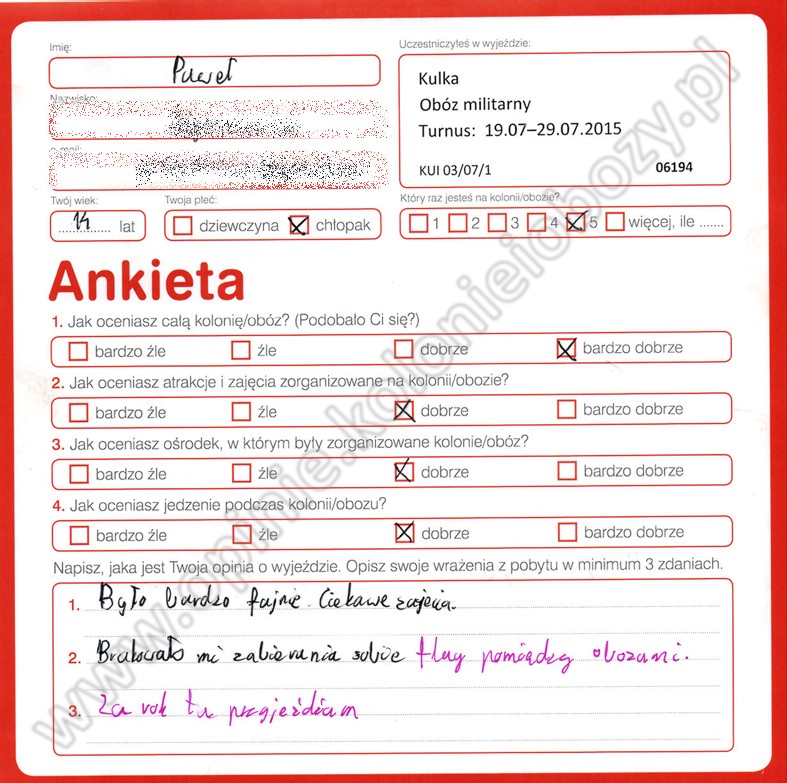 Imię:
Paweł
Uczestniczyłeś w wyjeździe:
Kulka
Obóz militarny
Turnus: 19.07–29.07.2015
KUI 03/07/1 06194
Nazwisko:
e-mail:
Twój wiek:
14 lat
Twoja płeć:
dziewczyna chłopak
Który raz jesteś na kolonii/obozie?
1 2 3 4 5 więcej, ile .......
Ankieta
1. Jak oceniasz całą kolonię/obóz? (Podobało Ci się?)
bardzo źle źle dobrze bardzo dobrze
2. Jak oceniasz atrakcje i zajęcia zorganizowane na kolonii/obozie?
bardzo źle źle dobrze bardzo dobrze
3. Jak oceniasz ośrodek, w którym były zorganizowane kolonie/obóz?
bardzo źle źle dobrze bardzo dobrze
4. Jak oceniasz jedzenie podczas kolonii/obozu?
bardzo źle źle dobrze bardzo dobrze
Napisz, jaka jest Twoja opinia o wyjeździe. Opisz swoje wrażenia z pobytu w minimum 3 zdaniach.
1. Było bardzo fajnie. Ciekawe zajęcia.
2. Brakowało mi zabierania sobie flag pomiędzy obozami.
3. Za rok tu przyjeżdżam
www.opinie.kolonieiobozy.pl